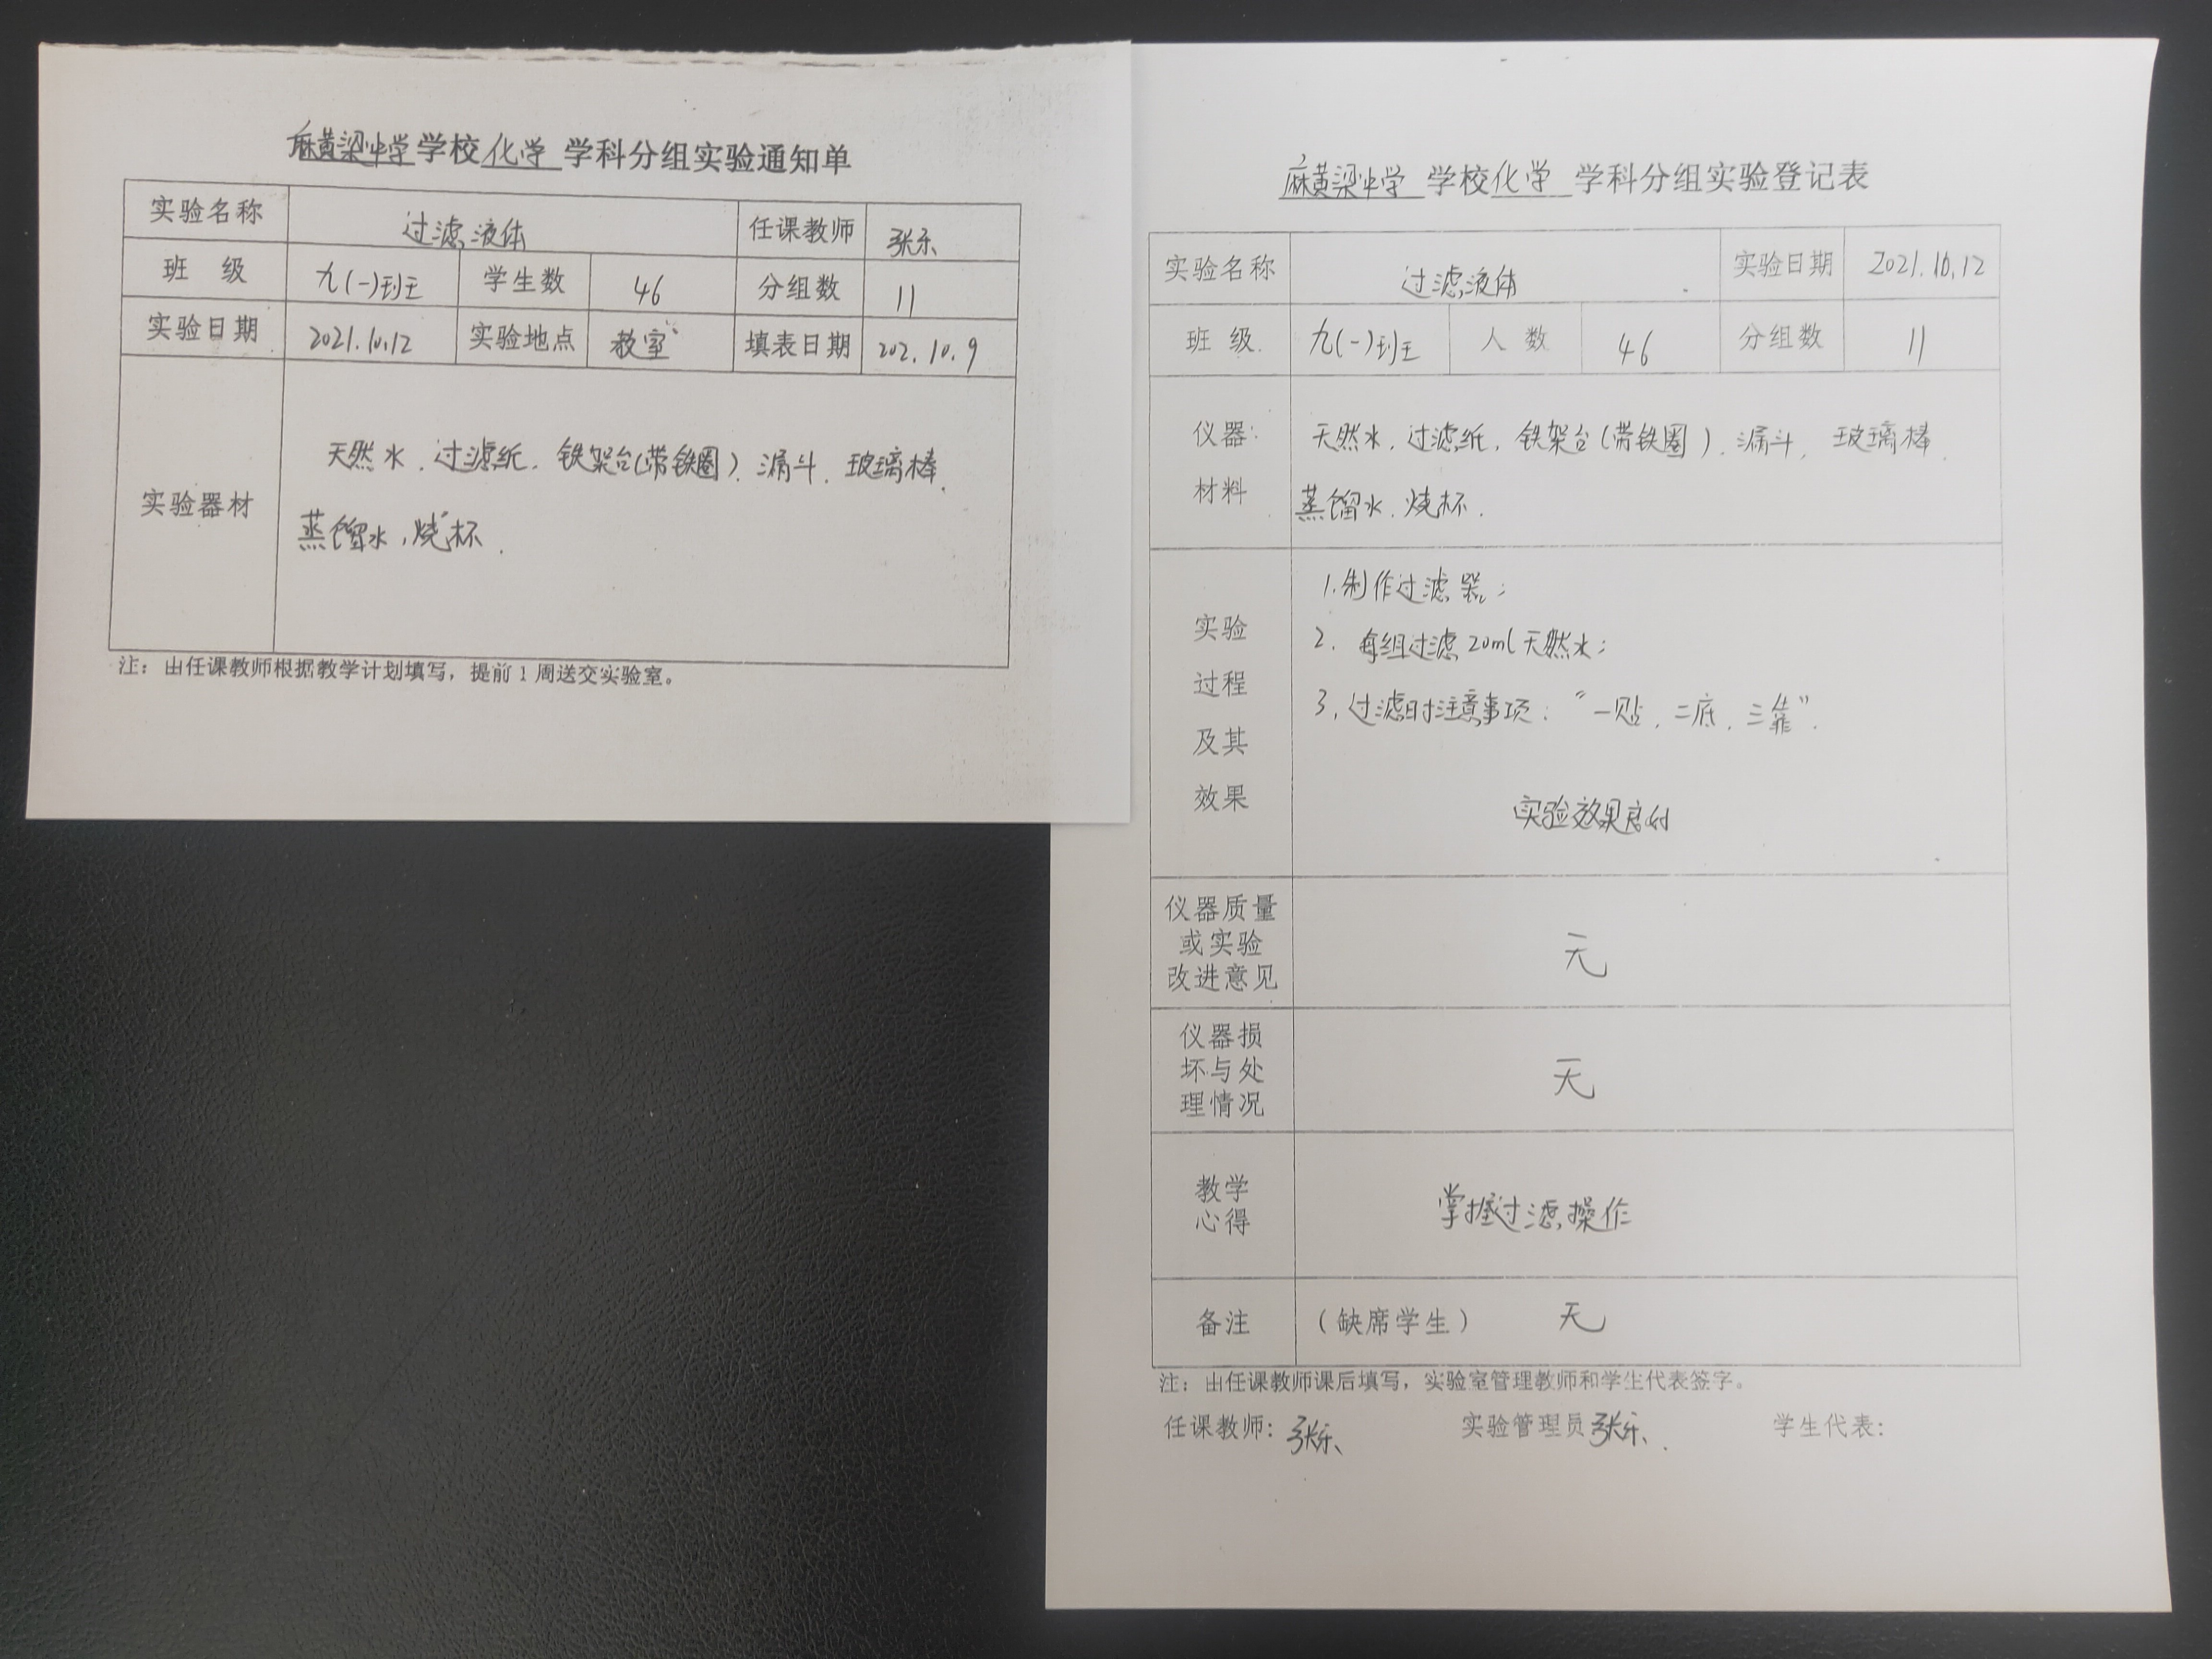 麻黄梁中学学校化学学科分组实验通知单
实验名称 过滤液体 任课教师 张乐
班 级 九(一)班 学生数 46 分组数 11
实验日期 2021.10.12 实验地点 教室 填表日期 202.10.9
实验器材 天然水.过滤纸.铁架台(带铁圈).漏斗.玻璃棒.
蒸馏水,烧杯.
注：由任课教师根据教学计划填写，提前1周送交实验室。
麻黄梁中学 学校化学 学科分组实验登记表
实验名称 过滤液体 实验日期 2021.10.12
班 级 九(一)班 人 数 46 分组数 11
仪器: 天然水.过滤纸.铁架台(带铁圈).漏斗.玻璃棒.
材料 蒸馏水.烧杯.
1.制作过滤器;
实验 2.每组过滤20ml天然水;
过程 3.过滤时注意事项:"一贴.二底.三靠".
及其
效果 实验效果良好
仪器质量
或实验 无
改进意见
仪器损
坏与处 无
理情况
教学 掌握过滤操作
心得
备注 (缺席学生) 无
注：由任课教师课后填写，实验室管理教师和学生代表签字。
任课教师: 张乐 实验管理员 张乐 学生代表: